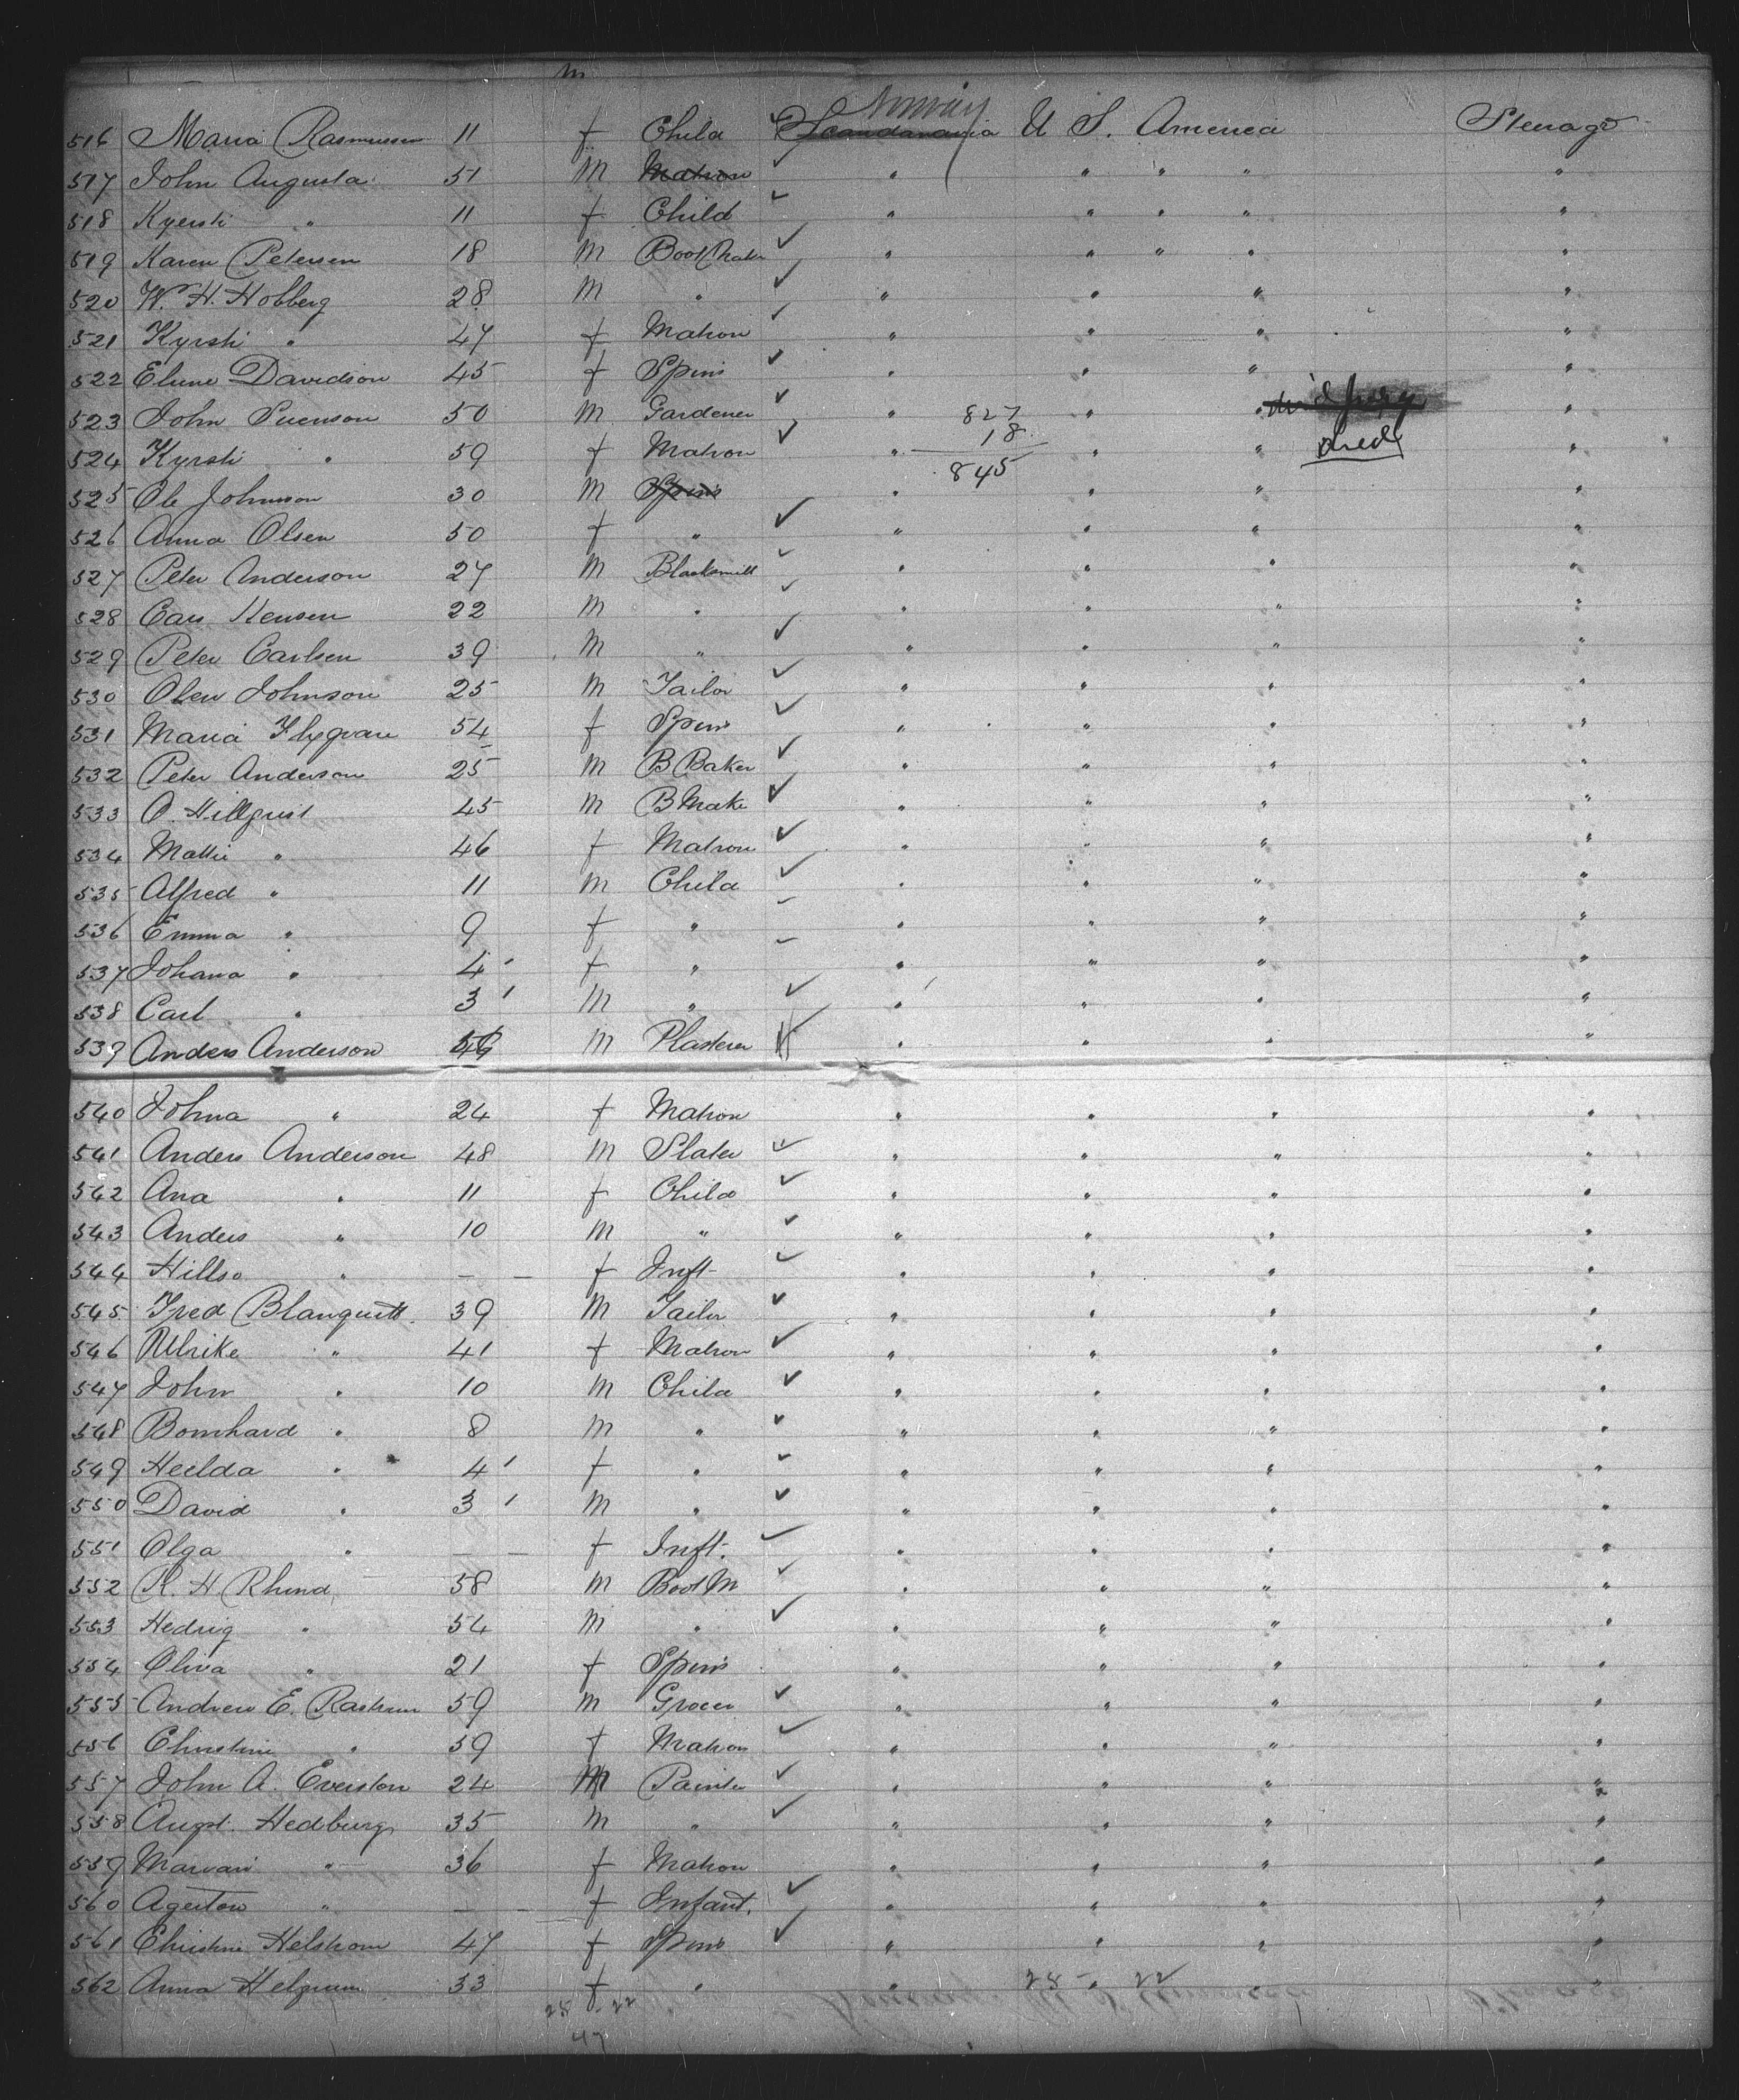 m
Norway
516 Maria Rasmussen 11 f Child Scandanavia U S. America Sterrage
517 John Augusta 51 M Matron " " " " "
518 Kyersti " 11 f Child " " " " "
519 Karen Petersen 18 M Boot Maker " " " " "
520 W. H. Hobberg 28 M " " " " "
521 Kyrsti " 47 f Matron " " " "
522 Elune Davidson 45 f Spins " " " "
523 John Suenson 50 M Gardener " 827 " " "
18
524 Kyrsti " 59 f Matron " " " died "
845
525 Ole Johnson 30 M Spins " " " "
526 Anna Olsen 50 f " " " " "
527 Peter Anderson 27 M Blacksmith " " " "
528 Cars Hensen 22 M " " " " "
529 Peter Carlsen 39 M " " " " "
530 Olen Johnson 25 M Tailor " " " "
531 Maria 54 f Spins " " " "
532 Peter Anderson 25 M B Baker " " " "
533 O. Hillquist 45 M B Make " " " "
534 Mattie " 46 f Matron " " " "
535 Alfred " 11 M Child " " " "
536 Emma " 9 f " " " " "
537 Johana " 4 ' f " " " " "
538 Carl " 3 ' M " " " " "
539 Anders Anderson M Plasterer " " " "
540 Johna " 24 f Matron " " " "
541 Anders Anderson 48 M Slater " " " "
542 Ana " 11 f Child " " " "
543 Anders " 10 M " " " " "
544 Hillso " – – f Inft " " " "
545 Fred Blanquett 39 M Tailor " " " "
546 Ulrike " 41 f Matron " " " "
547 John " 10 M Child " " " "
548 Bomhard " 8 M " " " " "
549 Heelda " 4 ' f " " " " "
550 David " 3 ' M " " " " "
551 Olga " – – f Inft. " " " "
552 K. H Rhind 58 M Boot M " " " "
553 Hedrig " 54 M " " " " "
554 Oliva " 21 f Spins " " " "
555 Andrew E. 59 M Grocer " " " "
556 Christine " 59 f Matron " " " "
557 John A. Everston 24 M Painter " " " "
558 Augst. Hedburg 35 M " " " " "
559 Marvari " 36 f Matron " " " "
560 Agerton " – – f Infant. " " " "
561 Christine Helstrom 47 f Spins " " " "
562 Anna 33 f " " 28 - " 22 " "
28 - 22
47